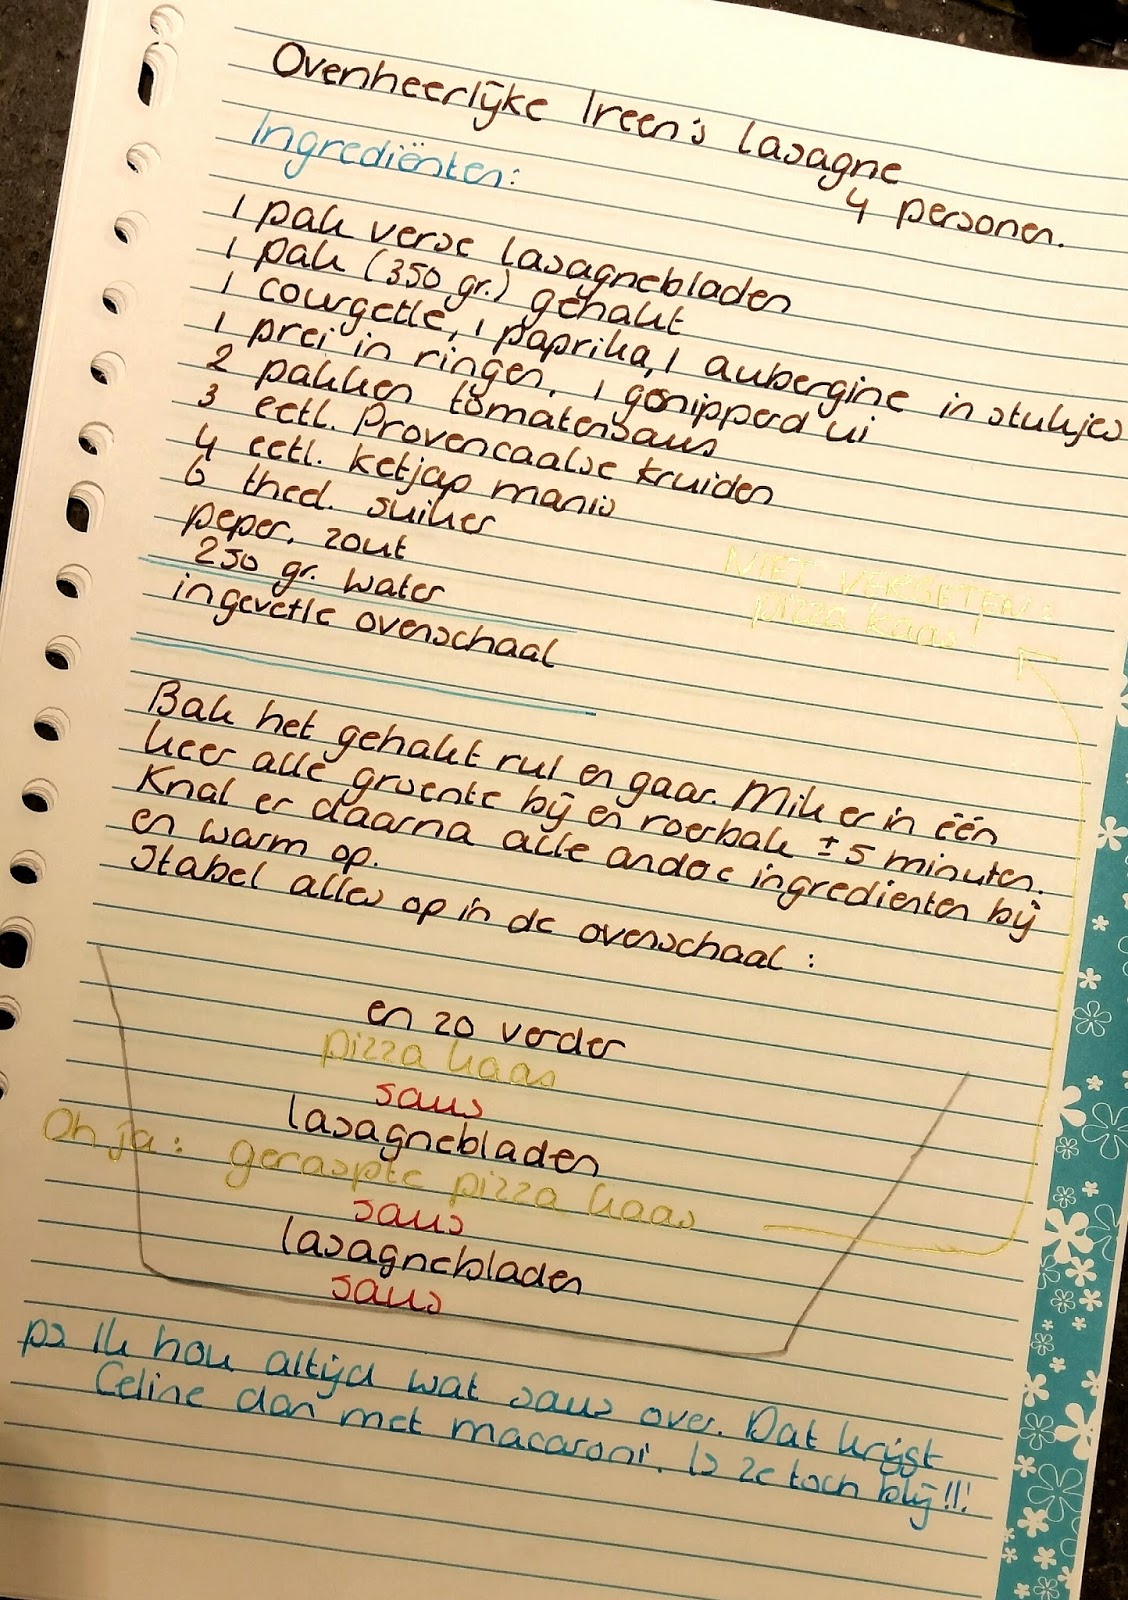 Ovenheerlijke Ireen's lasagne
4 personen.
Ingrediënten:
1 pak verse lasagnebladen
1 pak (350 gr.) gehakt
1 courgette, 1 paprika, 1 aubergine in stukjes
1 prei in ringen, 1 gesnipperd ui
2 pakken tomatensaus
3 eetl. Provencaalse kruiden
4 eetl. ketjap manis
6 theel. suiker
peper, zout
250 gr. water
ingevette ovenschaal
NIET VERGETEN:
pizza kaas
Bak het gehakt rul en gaar. Mik er in één
keer alle groente bij en roerbak ± 5 minuten.
Knal er daarna alle andere ingredienten bij
en warm op.
Stabel alles op in de ovenschaal:
en zo verder
pizza kaas
saus
lasagnebladen
Oh ja: geraspte pizza kaas
saus
lasagnebladen
saus
ps Ik hou altijd wat saus over. Dat krijgt
Celine dan met macaroni. Is ze toch blij!!!